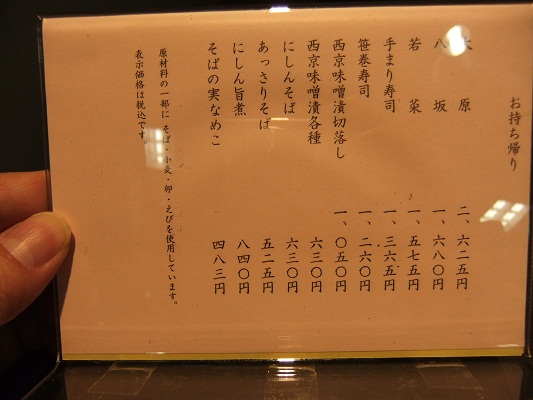 お持ち帰り
大原 二、六二五円
八坂 一、六八〇円
若菜 一、五七五円
手まり寿司 一、三六五円
笹巻寿司 一、二六〇円
西京味噌漬切落し 一、〇五〇円
西京味噌漬各種 六三〇円
にしんそば 六三〇円
あっさりそば 五二五円
にしん旨煮 八四〇円
そばの実なめこ 四八三円
原材料の一部に そば・小麦・卵・えびを使用しています。
表示価格は税込です。